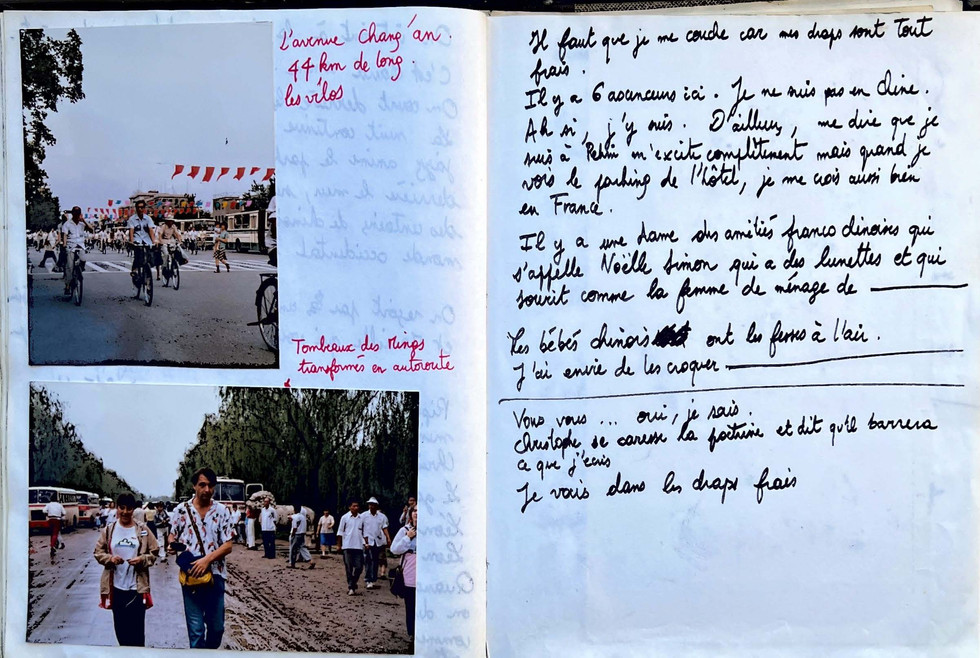 L'avenue Chang'an.
44 km de long.
les vélos
Tombeaux des Mings
transformés en autoroute
Il faut que je me couche car mes draps sont tout
frais.
Il y a 6 ascenceurs ici. Je ne suis pas en Chine.
Ah si, j'y suis. D'ailleurs, me dire que je
suis à Pékin m'excite complètement mais quand je
vois le parking de l'hôtel, je me crois aussi bien
en France.
Il y a une dame des amitiés franco chinoises qui
s'appelle Noëlle Simon qui a des lunettes et qui
sourit comme la femme de ménage de
Les bébés chinois ont les fesses à l'air.
J'ai envie de les croquer
Vous vous ... oui, je sais.
Christophe se caresse la poitrine et dit qu'il barrera
ce que j'écris
Je vais dans les draps frais